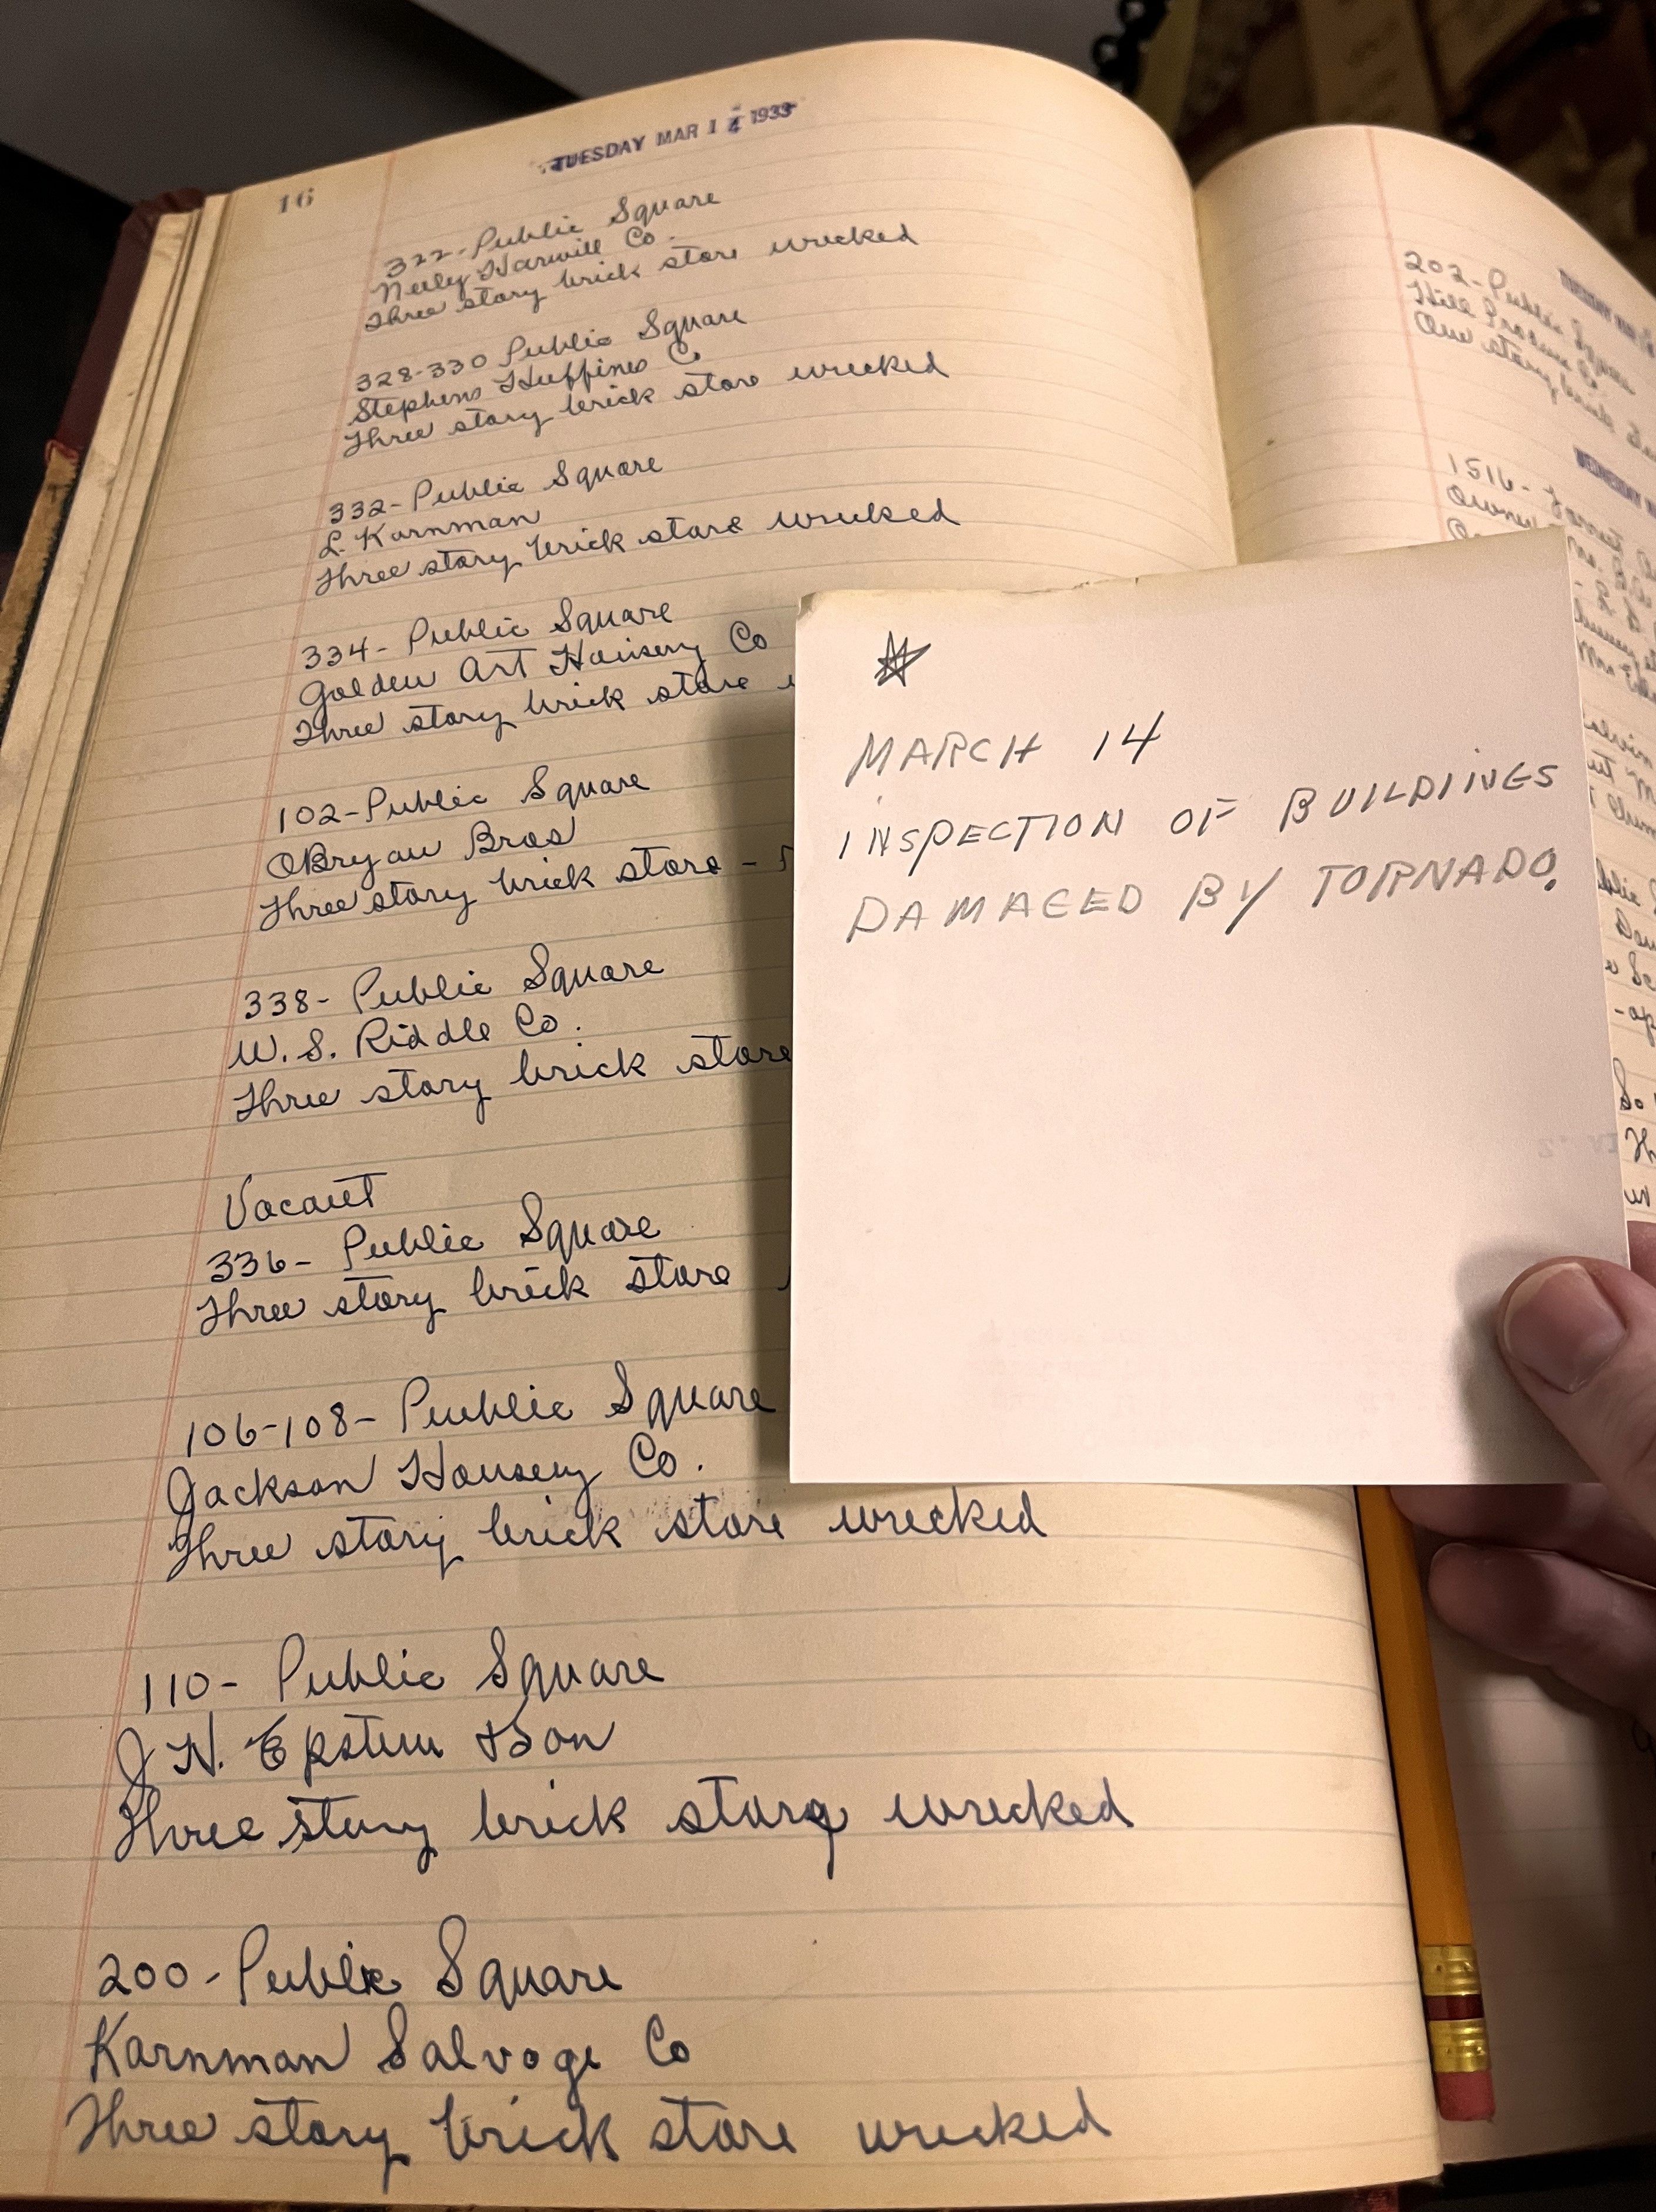 16
TUESDAY MAR 14 1933
322-Public Square
Neely Harwill Co.
Three story brick store wrecked
328-330 Public Square
Stephens Huffines Co
Three story brick store wrecked
332-Public Square
L. Karnman
Three story brick store wrecked
334- Public Square
Golden Art Hoisery Co
Three story brick store
102-Public Square
OBryan Bros
Three story brick store -
338- Public Square
W. S. Riddle Co.
Three story brick store
Vacant
336- Public Square
Three story brick store
106-108- Public Square
Jackson Housery Co.
Three story brick store wrecked
110- Public Square
J. N. Epstein & Son
Three story brick store wrecked
200-Public Square
Karnman Salvoge Co
Three story brick store wrecked
MARCH 14
INSPECTION OF BUILDINGS
DAMAGED BY TORNADO.
202-Public Square
Hill Produce Co
One story brick
1516-
Owner